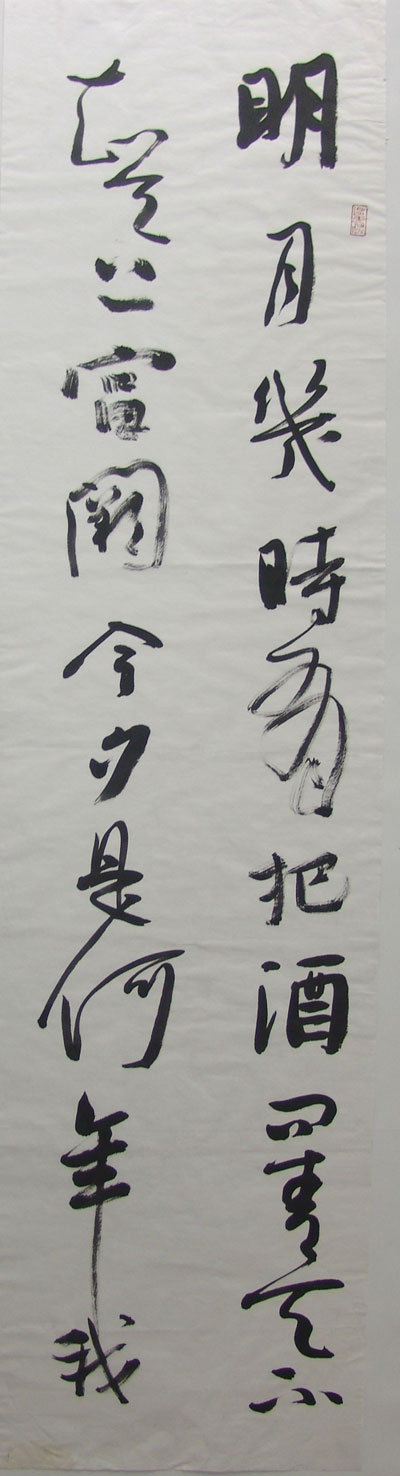 明月幾時有把酒問青天不
知天上宮闕今夕是何年我